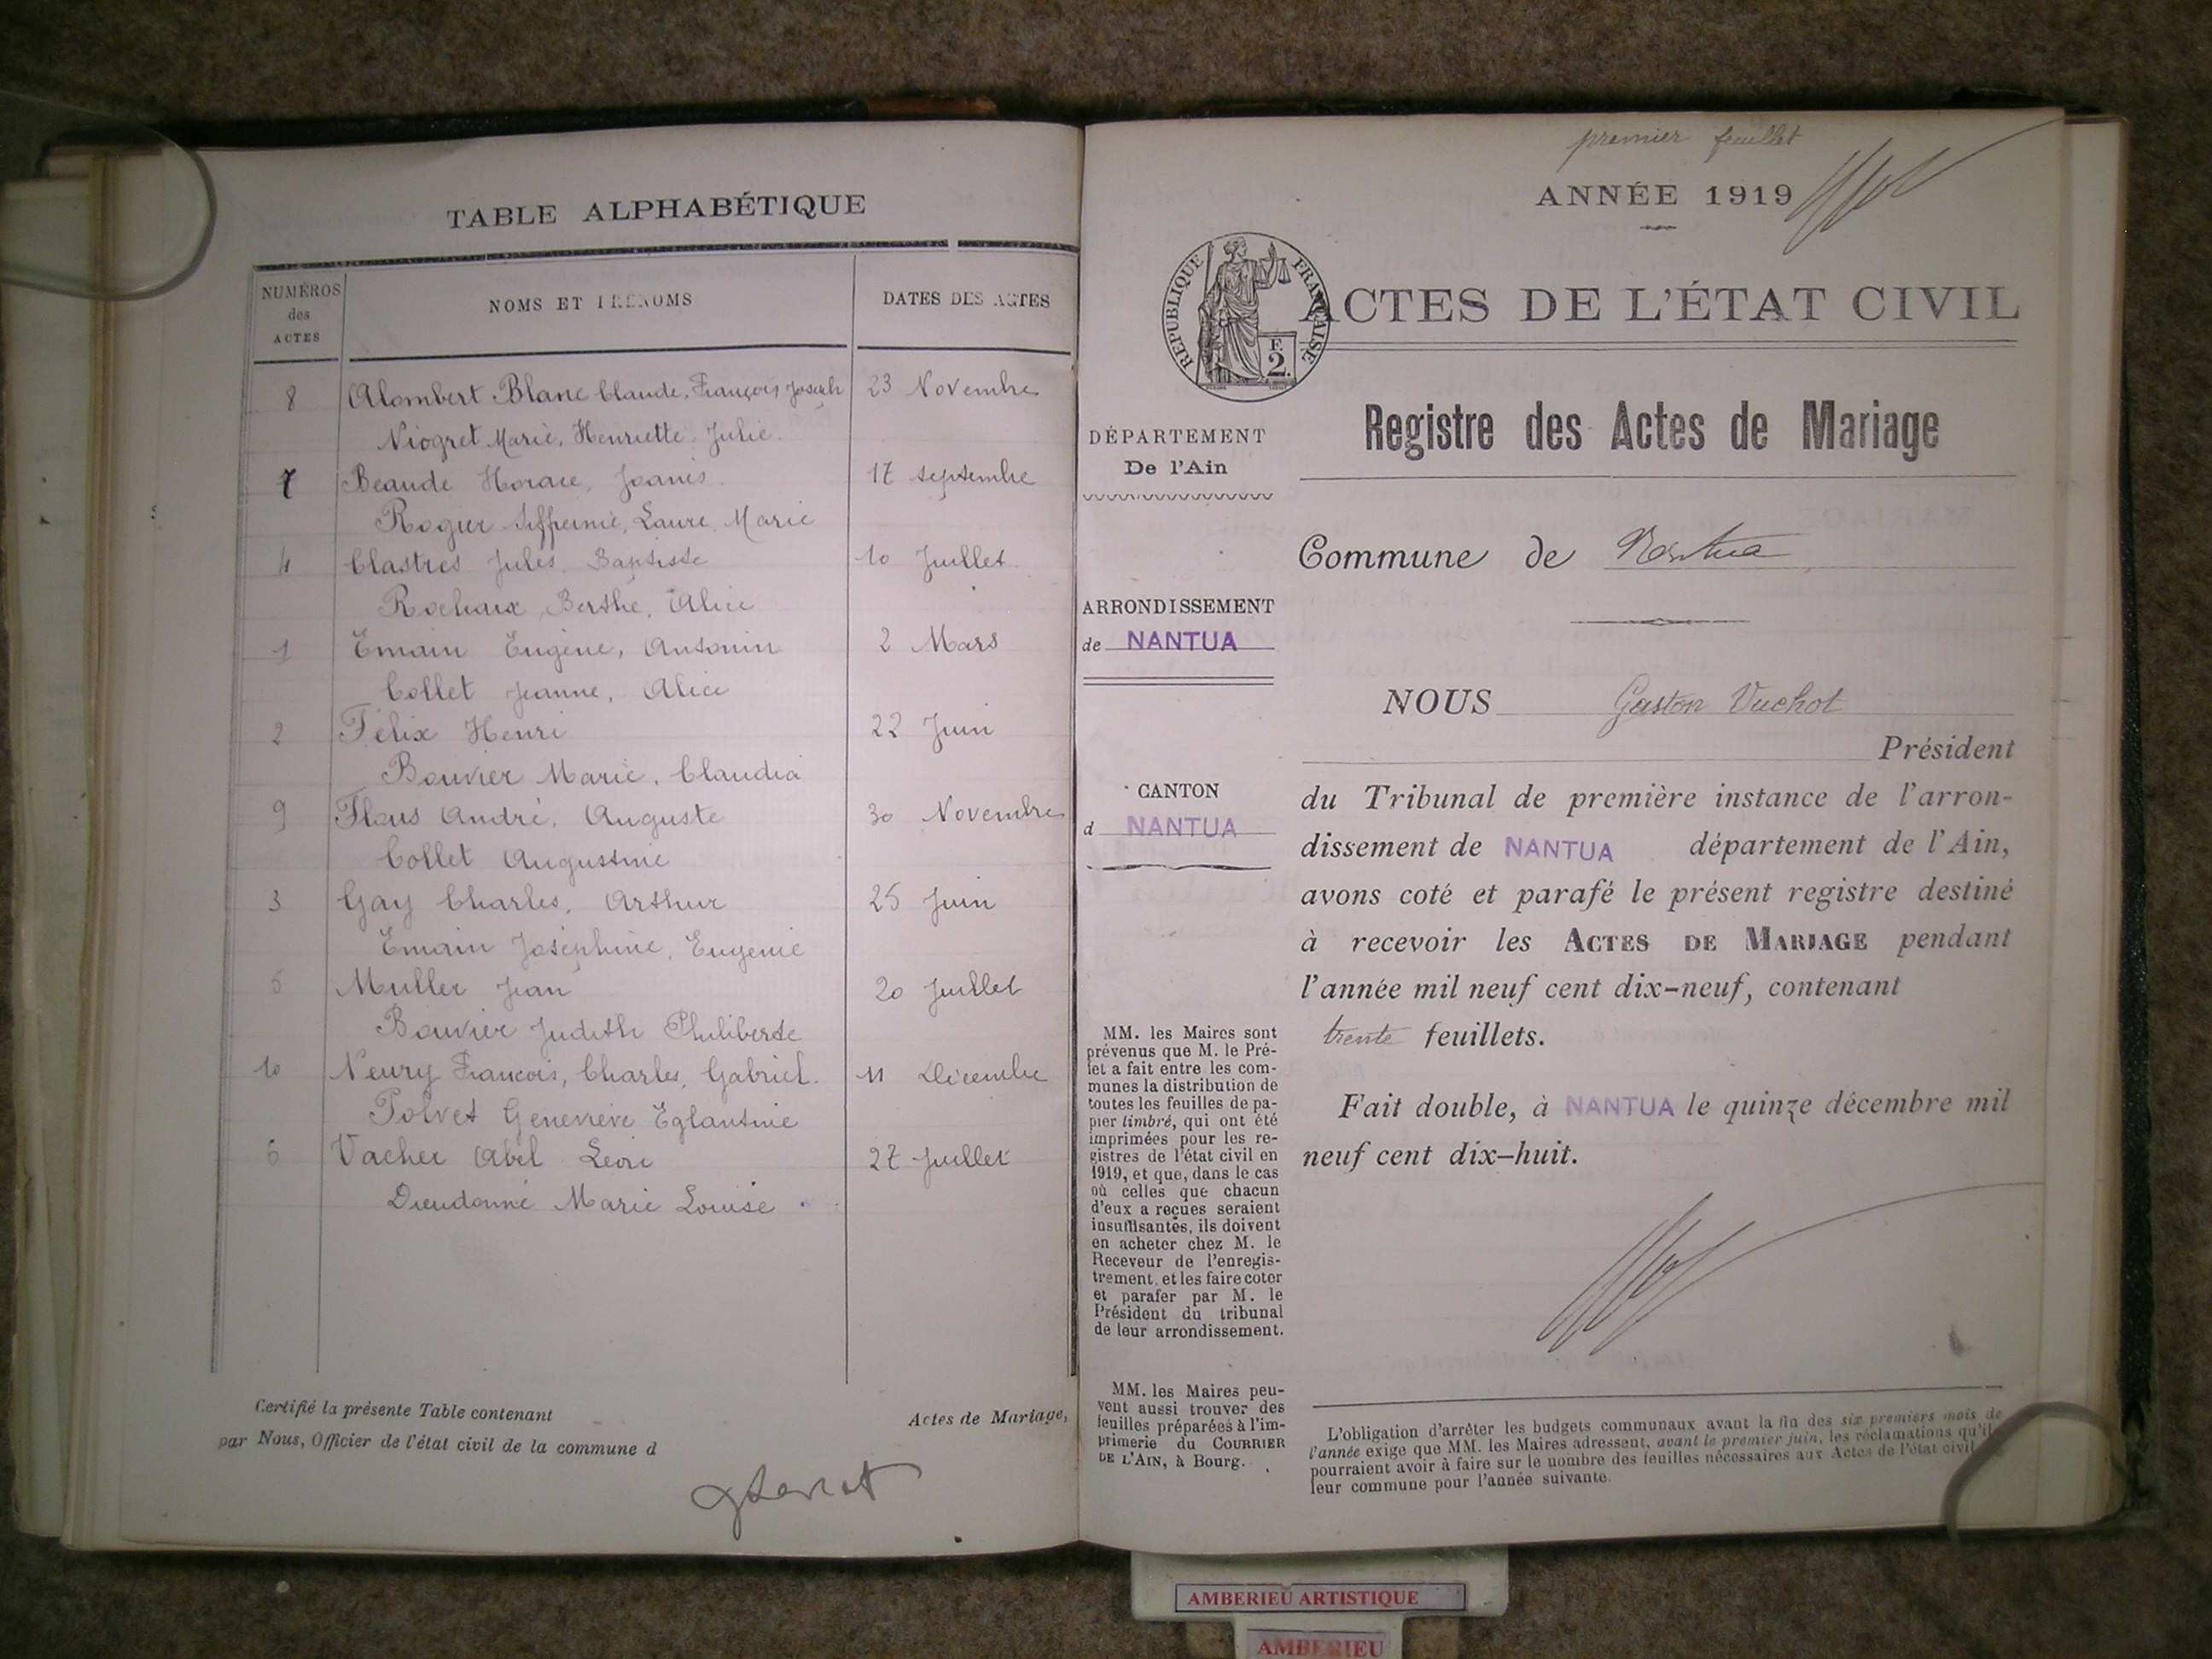 TABLE ALPHABÉTIQUE
NUMÉROS des ACTES
NOMS ET PRÉNOMS
DATES DES ACTES
8 Alombert Blanc Claude, François Joseph 23 Novembre
Niogret Marie, Henriette, Julie.
7 Beaude Horace, Joanès. 17 septembre
Rogier Laure, Marie
4 Clastres Jules, Baptiste 10 Juillet
Rochaix, Berthe, Alice
1 Emain Eugène, Antonin 2 Mars
Collet Jeanne, Alice
2 Félix Henri 22 Juin
Bouvier Marie, Claudia
9 André, Auguste 30 Novembre
Collet Augustine
3 Gay Charles, Arthur 25 Juin
Emain Joséphine, Eugénie
5 Muller Jean 20 Juillet
Bouvier Judith Philiberte
10 Neury François, Charles, Gabriel. 11 Décembre
Polvet Geneviève Eglantine
6 Vacher Abel Léon 27 Juillet
Dieudonné Marie Louise
Certifié la présente Table contenant Actes de Mariage,
par Nous, Officier de l'état civil de la commune d
premier feuillet
ANNÉE 1919
RÉPUBLIQUE FRANÇAISE
F. 2.
ACTES DE L'ÉTAT CIVIL
DÉPARTEMENT
De l'Ain
ARRONDISSEMENT
de NANTUA
CANTON
d NANTUA
MM. les Maires sont
prévenus que M. le Pré-
fet a fait entre les com-
munes la distribution de
toutes les feuilles de pa-
pier timbré, qui ont été
imprimées pour les re-
gistres de l'état civil en
1919, et que, dans le cas
où celles que chacun
d'eux a reçues seraient
insuffisantes, ils doivent
en acheter chez M. le
Receveur de l'enregis-
trement, et les faire coter
et parafer par M. le
Président du tribunal
de leur arrondissement.
MM. les Maires peu-
vent aussi trouver des
feuilles préparées à l'im-
primerie du COURRIER
DE L'AIN, à Bourg.
Registre des Actes de Mariage
Commune de Nantua
NOUS Gaston Vuchot
Président
du Tribunal de première instance de l'arron-
dissement de NANTUA département de l'Ain,
avons coté et parafé le présent registre destiné
à recevoir les ACTES DE MARIAGE pendant
l'année mil neuf cent dix-neuf, contenant
trente feuillets.
Fait double, à NANTUA le quinze décembre mil
neuf cent dix-huit.
L'obligation d'arrêter les budgets communaux avant la fin des six premiers mois de
l'année exige que MM. les Maires adressent, avant le premier juin, les réclamations qu'il
pourraient avoir à faire sur le nombre des feuilles nécessaires aux Actes de l'état civil
leur commune pour l'année suivante.
AMBERIEU ARTISTIQUE
AMBERIEU